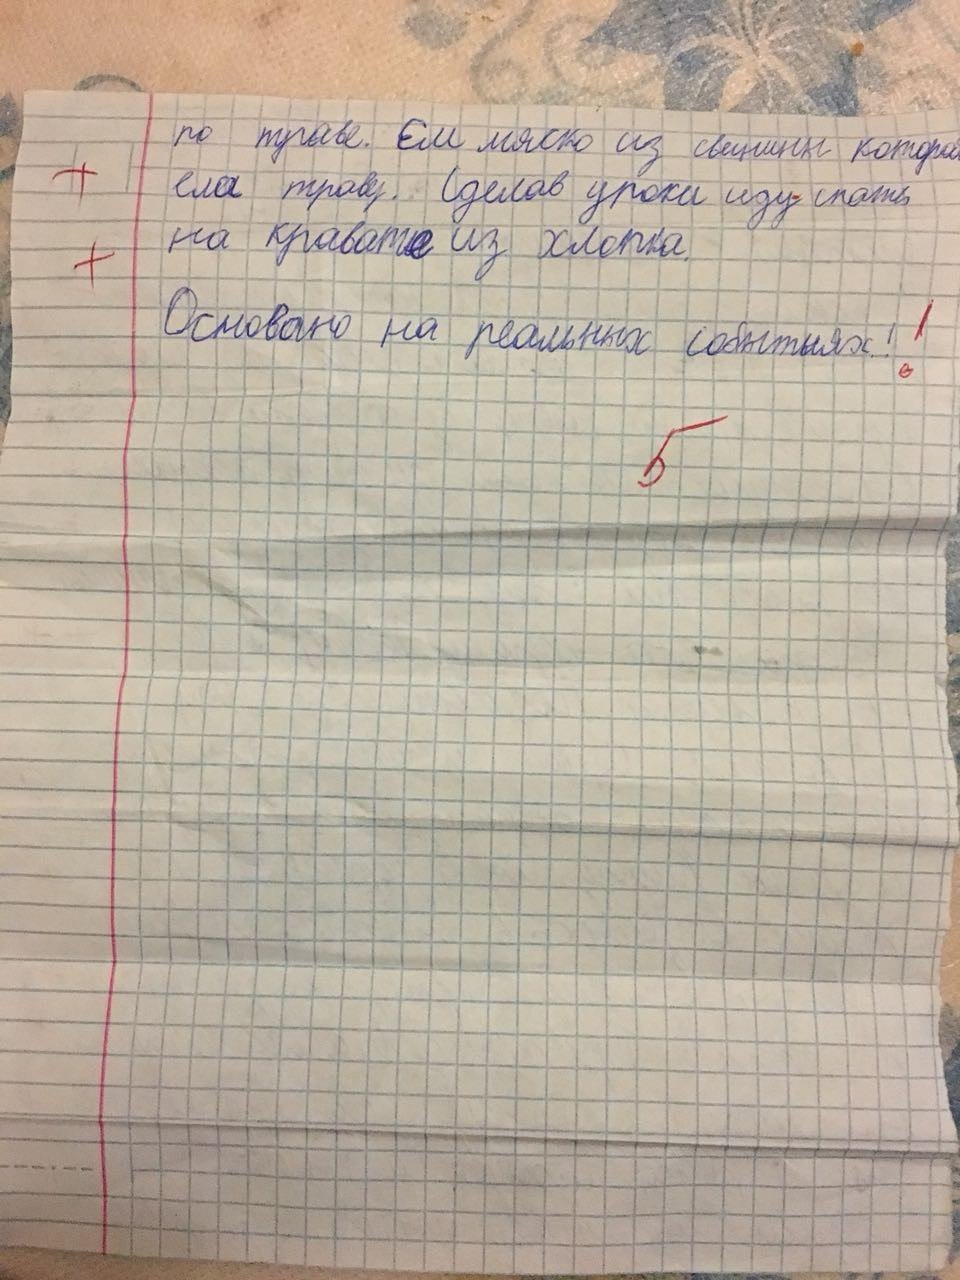 по траве. Ем мяско из свинины котора
+ ела траву. Сделав уроки иду спать
+ на кравате из хлопка.
Основано на реальных событиях!!
5